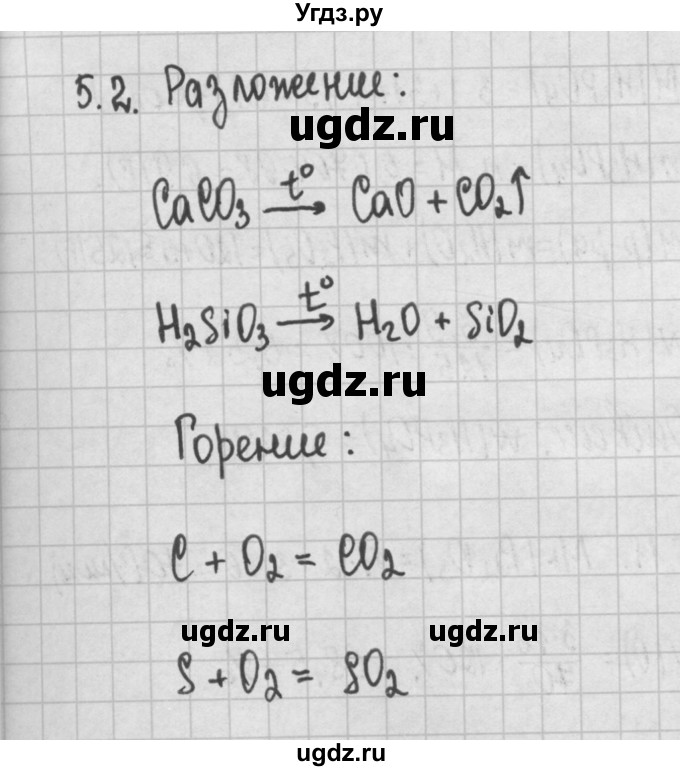 Угдз.ру
5.2. Разложение:
ugdz.ru
CaCO₃ —t°→ CaO + CO₂↑
H₂SiO₃ —t°→ H₂O + SiO₂
ugdz.ru
Горение:
C + O₂ = CO₂
ugdz.ru ugdz.ru
S + O₂ = SO₂
ugdz.ru